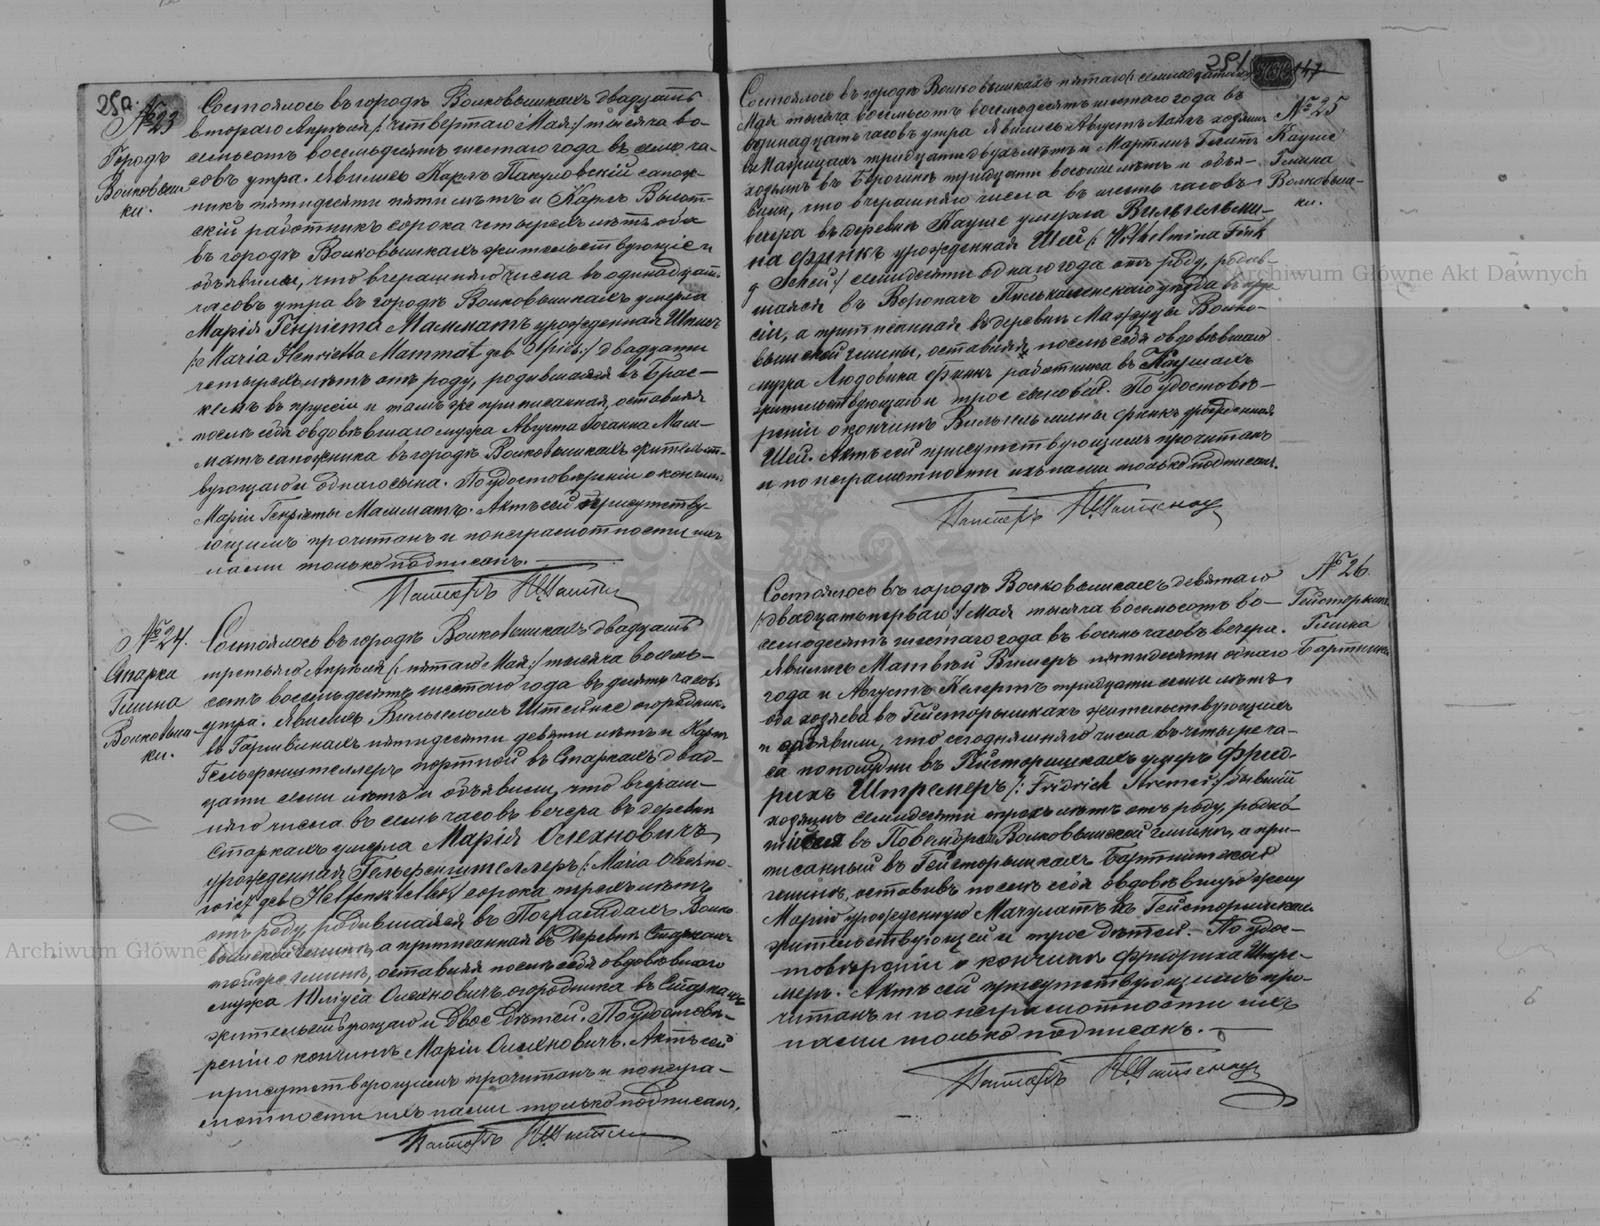 25а.
№ 23
Городъ
Волковыш-
ки.
Состоялось въ городѣ Волковышкахъ двадцать
втораго Апрѣля /: четвертаго Мая :/ тысяча во-
семьсотъ восемьдесятъ шестаго года въ семь ча-
совъ утра. Явились Карлъ сапож-
никъ пятидесяти пяти лѣтъ и Карлъ
скій работникъ сорока четырехъ лѣтъ оба
въ городѣ Волковышкахъ жительствующіе и
объявили, что вчерашняго числа въ одинадцать
часовъ утра въ городѣ Волковышкахъ умерла
Марія Генріета Мамматъ урожденная Шписъ
/: Maria Henrietta Mammat geb. Spies :/ двадцати
четырехъ лѣтъ отъ роду, родившаяся въ
въ Пруссіи и тамъ же приписанная, оставивъ
послѣ себя овдовѣвшаго мужа Августа Іоганна Мам-
матъ сапожника въ городѣ Волковышкахъ жительст-
вующаго и однаго сына. По удостовѣреніи о кончинѣ
Маріи Генріеты Маммать. Актъ сей присутству-
ющимъ прочитанъ и по неграмотности ихъ
нами только подписанъ.
Пасторъ
№ 24.
Старка
Гмина
Волковыш-
ки.
Состоялось въ городѣ Волковышкахъ двадцать
третьяго Апрѣля /: пятаго Мая :/ тысяча восемь-
сотъ восемьдесятъ шестаго года въ десять часовъ
утра. Явились Вильгельмъ огородникъ
въ пятидесяти девяти лѣтъ и Карлъ
Гельфенштеллеръ портной въ Старкахъ двад-
цати семи лѣтъ и объявили, что вчераш-
няго числа въ семь часовъ вечера въ деревнѣ
Старкахъ умерла Марія Олехновичъ
урожденная Гельфенштеллеръ /: Maria Olechno-
wicz geb. Helfensteller :/ сорока трехъ лѣтъ
отъ роду, родившаяся въ Волко-
вышской гминѣ, а приписанная въ деревнѣ Старкахъ
той же гмины, оставивъ послѣ себя овдовѣвшаго
мужа Юліуса Олехновичъ огородника въ Старкахъ
жительствующаго и двое дѣтей. По удостовѣ-
реніи о кончинѣ Маріи Олехновичъ. Актъ сей
присутствующимъ прочитанъ и по негра-
мотности ихъ нами только подписанъ.
Пасторъ
251
147
№ 25
Пауше
Гмина
Волковыш-
ки.
Состоялось въ городѣ Волковышкахъ пятаго /: семнадцатаго
Мая тысяча восемьсотъ восемьдесятъ шестаго года въ
одинадцать часовъ утра. Явились Августъ хозяинъ
въ тридцати двухъ лѣтъ и Мартинъ
хозяинъ въ тридцати восьми лѣтъ и объя-
вили, что вчерашняго числа въ шесть часовъ
вечера въ деревнѣ Пауше умерла Вильгельми-
на Финкъ урожденная Шей /: Wilhelmina Fink
g. Schei :/ семидесяти однаго года отъ роду, родив-
шаяся въ уѣзда въ Прус-
сіи, а приписанная въ деревнѣ Волко-
вышской гмины, оставивъ послѣ себя овдовѣвшаго
мужа Людовика Финкъ работника въ Паушахъ
жительствующаго и трое сыновей. По удостовѣ-
реніи о кончинѣ Вильгельмины Финкъ урожденная
Шей. Актъ сей присутствующимъ прочитанъ
и по неграмотности ихъ нами только подписанъ.
Пасторъ
№ 26
Гейсторышки
Гмина
Бартники
Состоялось въ городѣ Волковышкахъ девятаго
/: двадцать перваго :/ Мая тысяча восемьсотъ во-
семьдесятъ шестаго года въ восемь часовъ вечера.
Явились Матвѣй пятидесяти однаго
года и Августъ Келертъ тридцати семи лѣтъ
оба хозяева въ Гейсторышкахъ жительствующіе
и объявили, что сегодняшняго числа въ четыре ча-
са пополудни въ Гейсторишкахъ умеръ Фрид-
рихъ Штремеръ /: Fridrich Stremer :/ бывшій
хозяинъ семидесяти трехъ лѣтъ отъ роду, родив-
шійся въ Волковышской гминѣ, а при-
писанный въ Гейсторышкахъ Бартникской
гмины, оставивъ послѣ себя овдовѣвшую жену
Марію урожденную Мачулатъ въ Гейсторишкахъ
жительствующей и трое дѣтей. По удос-
товѣреніи о кончинѣ Фридриха Штре-
меръ. Актъ сей присутствующимъ про-
читанъ и по неграмотности ихъ
нами только подписанъ.
Пасторъ
Archiwum Główne Akt Dawnych
Archiwum Główne Akt Dawnych